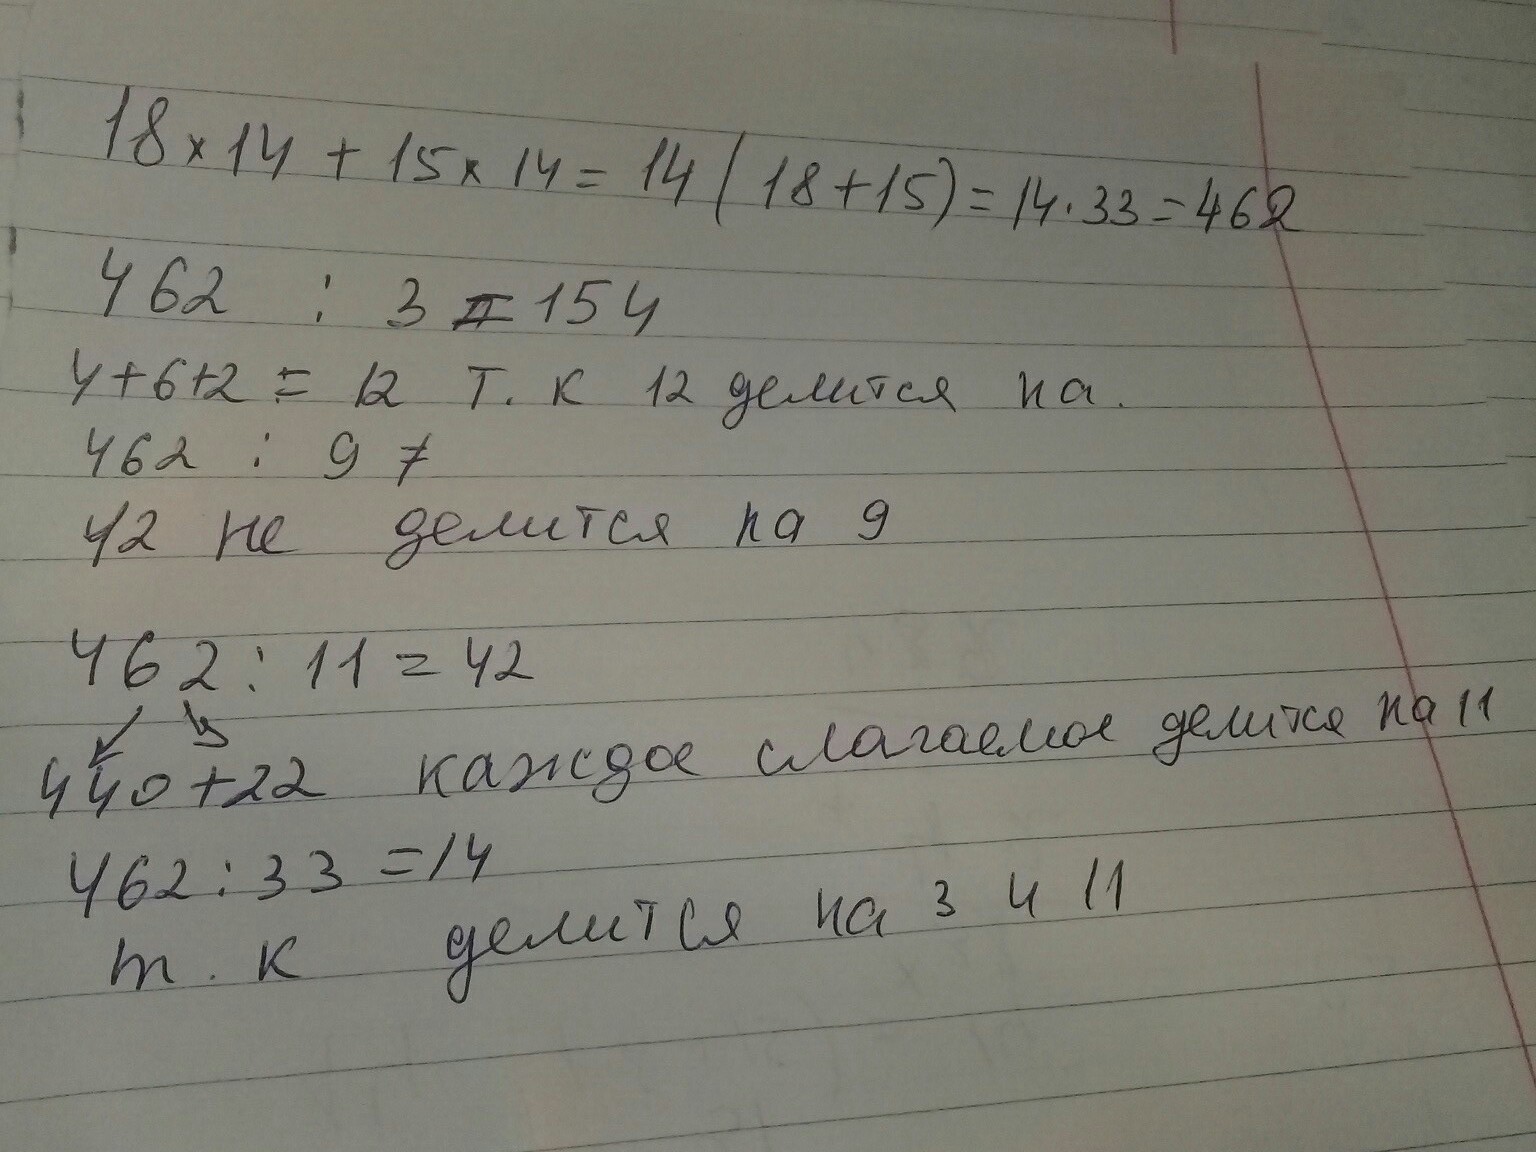 18 × 14 + 15 × 14 = 14 ( 18 + 15) = 14 · 33 = 462
462 : 3 = 154
4+6+2 = 12 т. к 12 делится на.
462 : 9 ≠
42 не делится на 9
462 : 11 = 42
440 + 22 каждое слагаемое делится на 11
462 : 33 = 14
т. к делится на 3 и 11